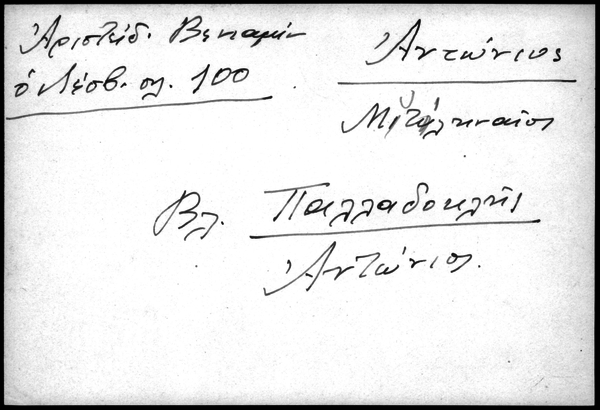 Ἀριστείδ. Βενιαμίν
ὁ Λέσβ. σελ. 100
Ἀντώνιος
Μυτιληναῖος
Βλ. Παλλαδοκλῆς
Ἀντώνιος.